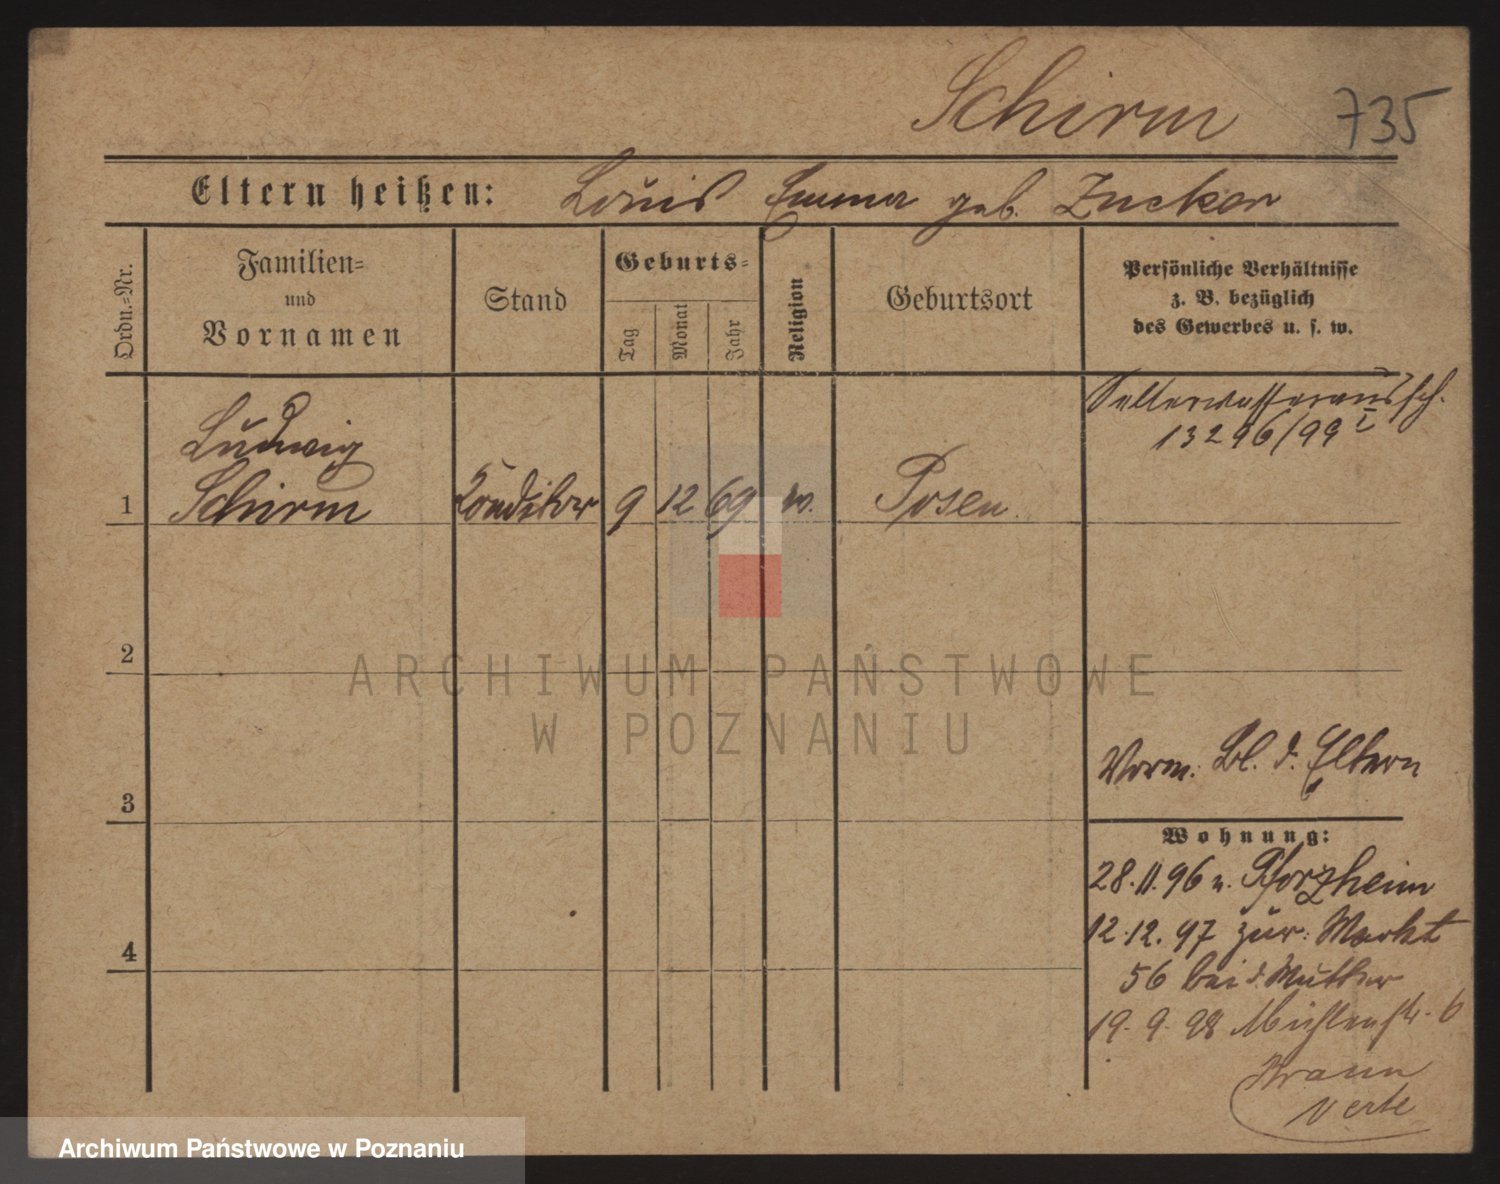 Schirm 735
Eltern heißen: Louis Emma geb. Zucker
Ordn.-Nr.
Familien-
und
Vornamen
Stand
Geburts-
Tag
Monat
Jahr
Religion
Geburtsort
Persönliche Verhältnisse
z. B. bezüglich
des Gewerbes u. s. w.
Selterwasseraussch.
13296/99 I
Ludwig
1 Schirm Conditor 9 12 69 Posen
2
ARCHIWUM PAŃSTWOWE
W POZNANIU
Vorm. Bl. d. Eltern
3
Wohnung:
28.11.96 n. Pforzheim
12.12.97 zur: Markt
4
56 bei d. Mutter
19.9.98 Mühlenstr. 6
Braun
verte
Archiwum Państwowe w Poznaniu